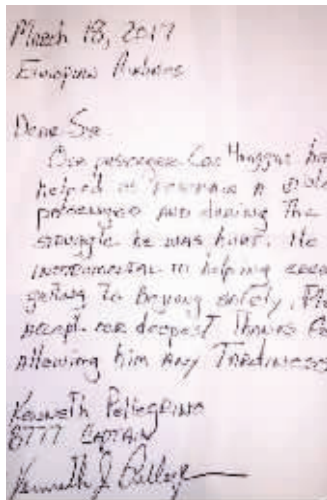 March 18, 2017
Ethiopian Airlines
Dear Sir
Our passenger Cas Huggar ha
helped us restrain a viole
passenger and during the
struggle he was hurt. He
incremental to helping ever
geting to Beijing safely. Pl
accept our deepest thanks fo
Allowing him any Tardiness
Kenneth Pellegrino
B777 Captain
Kenneth J Pelleg